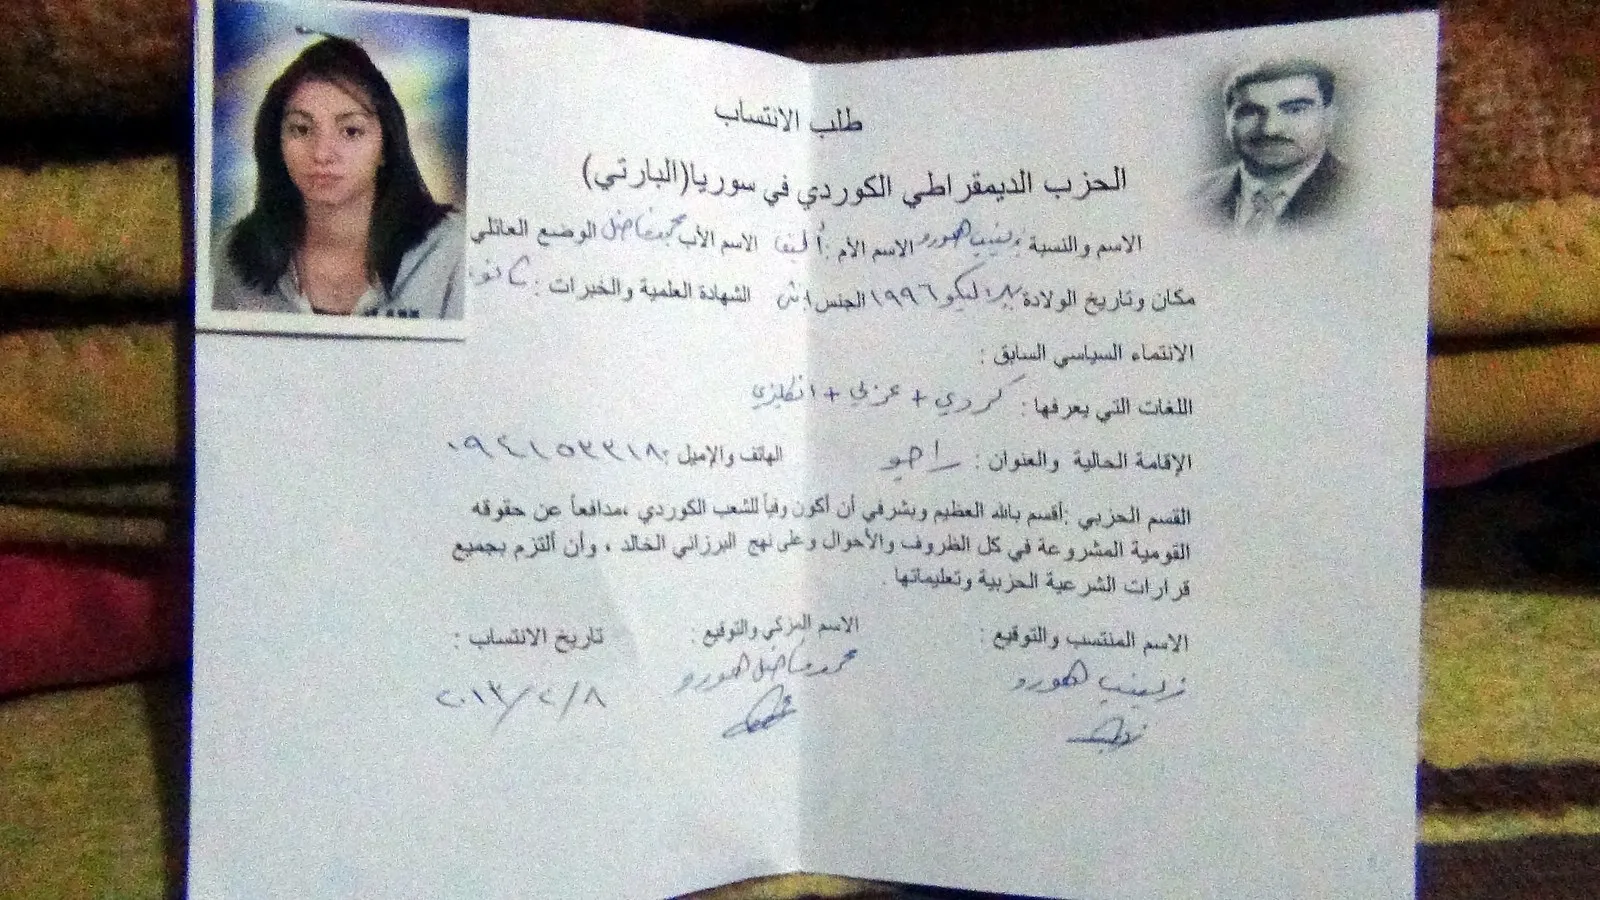 طلب الانتساب
الحزب الديمقراطي الكوردي في سوريا(البارتي)
الاسم والنسبة : زينب هورو الاسم الأم : الاسم الأب محمد فاضل الوضع العائلي
مكان وتاريخ الولادة ١٩٩٦ الجنس : الشهادة العلمية والخبرات :
الانتماء السياسي السابق :
اللغات التي يعرفها : كردي + عربي + انكليزي
الإقامة الحالية والعنوان : راجو الهاتف والإميل : ٠٩٤١٥٣٣١٨
القسم الحزبي :أقسم بالله العظيم وبشرفي أن أكون وفياً للشعب الكوردي ،مدافعاً عن حقوقه
القومية المشروعة في كل الظروف والأحوال وعلى نهج البرزاني الخالد ، وأن ألتزم بجميع
قرارات الشرعية الحزبية وتعليماتها .
الاسم المنتسب والتوقيع : الاسم المزكي والتوقيع : تاريخ الانتساب :
زينب هورو محمد فاضل هورو ٢٠١٣/٢/٨